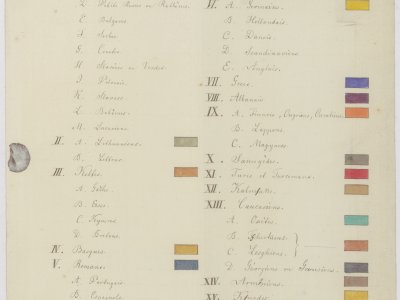 D. Petits Russ. ou Ruthènes.
E. Bulgares
F. Serbes
G. Croates
H. Slovènes ou Vendes.
I. Polonais.
K. Slovaques
L. Bohêmes.
M. Lusaciens.
II. A. Lithuaniens.
B. Lettons.
III. Keltes.
A. Gaëls.
B. Erses
C. Kymris
D. Bretons.
IV. Basques.
V. Romans.
A. Portugais
B. Espagnols
VI. A. Germains.
B. Hollandais.
C. Danois.
D. Scandinaves
E. Anglais.
VII. Grecs.
VIII. Albanais
IX. A. Finnois,
B. Lapons.
C. Magyares
X. Samoyèdes.
XI. Turcs et Turcomans.
XII. Kalmuks.
XIII. Caucasiens.
A.
B.
C. Lesghiens.
D. Géorgiens ou
XIV. Arméniens.
XV.